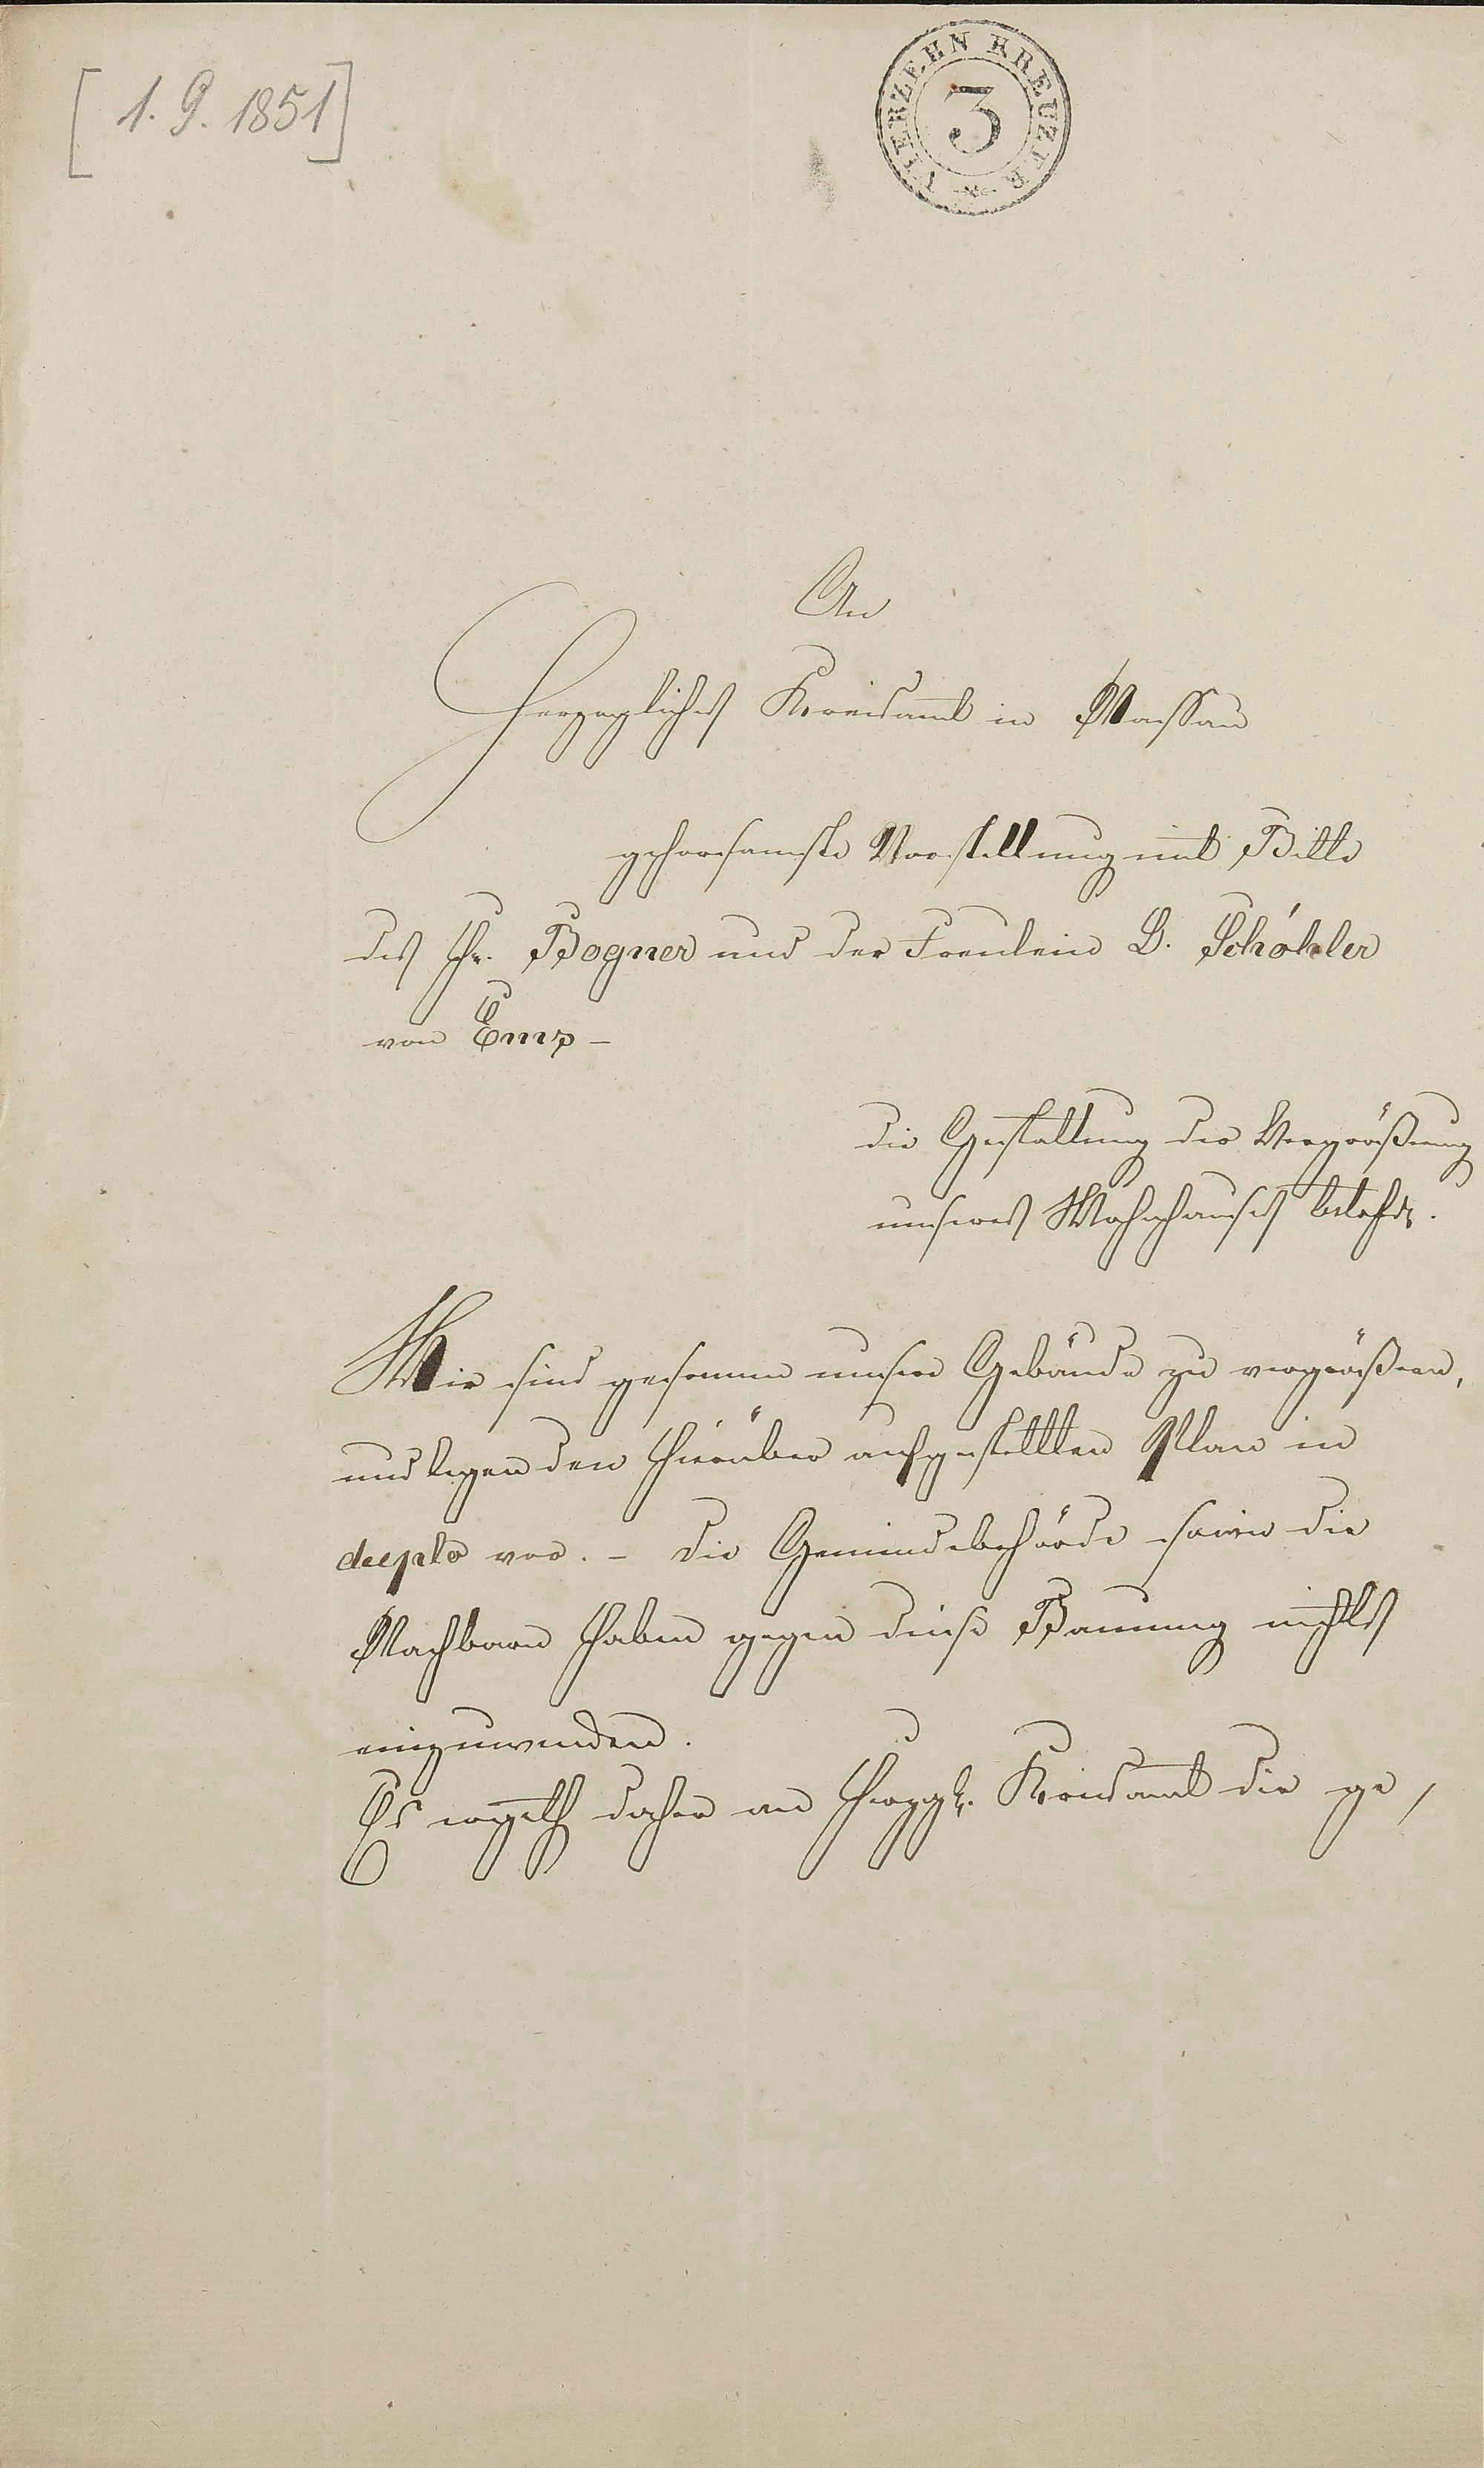 [1. 9. 1851]
VIERZEHN KREUZER
3
An
Herzogliches Kreisamt in Nassau
gehorsamste Vorstellung mit Bitte
des Hr. Bogner und der Freulein D. Schöhler
von Ems –
die Gestattung der Vergrößerung
unseres Wohnhauses
Wir sind gesonnen unsere Gebäude zu vergrößern,
und legen den hierüber aufgestellten Plan in
duplo vor. – Die Gemeindebehörde sowie die
Nachbarn haben gegen diese Bauung nichts
einzuwenden.
Es ergeth daher an Herzgl. Kreisamt die ge,